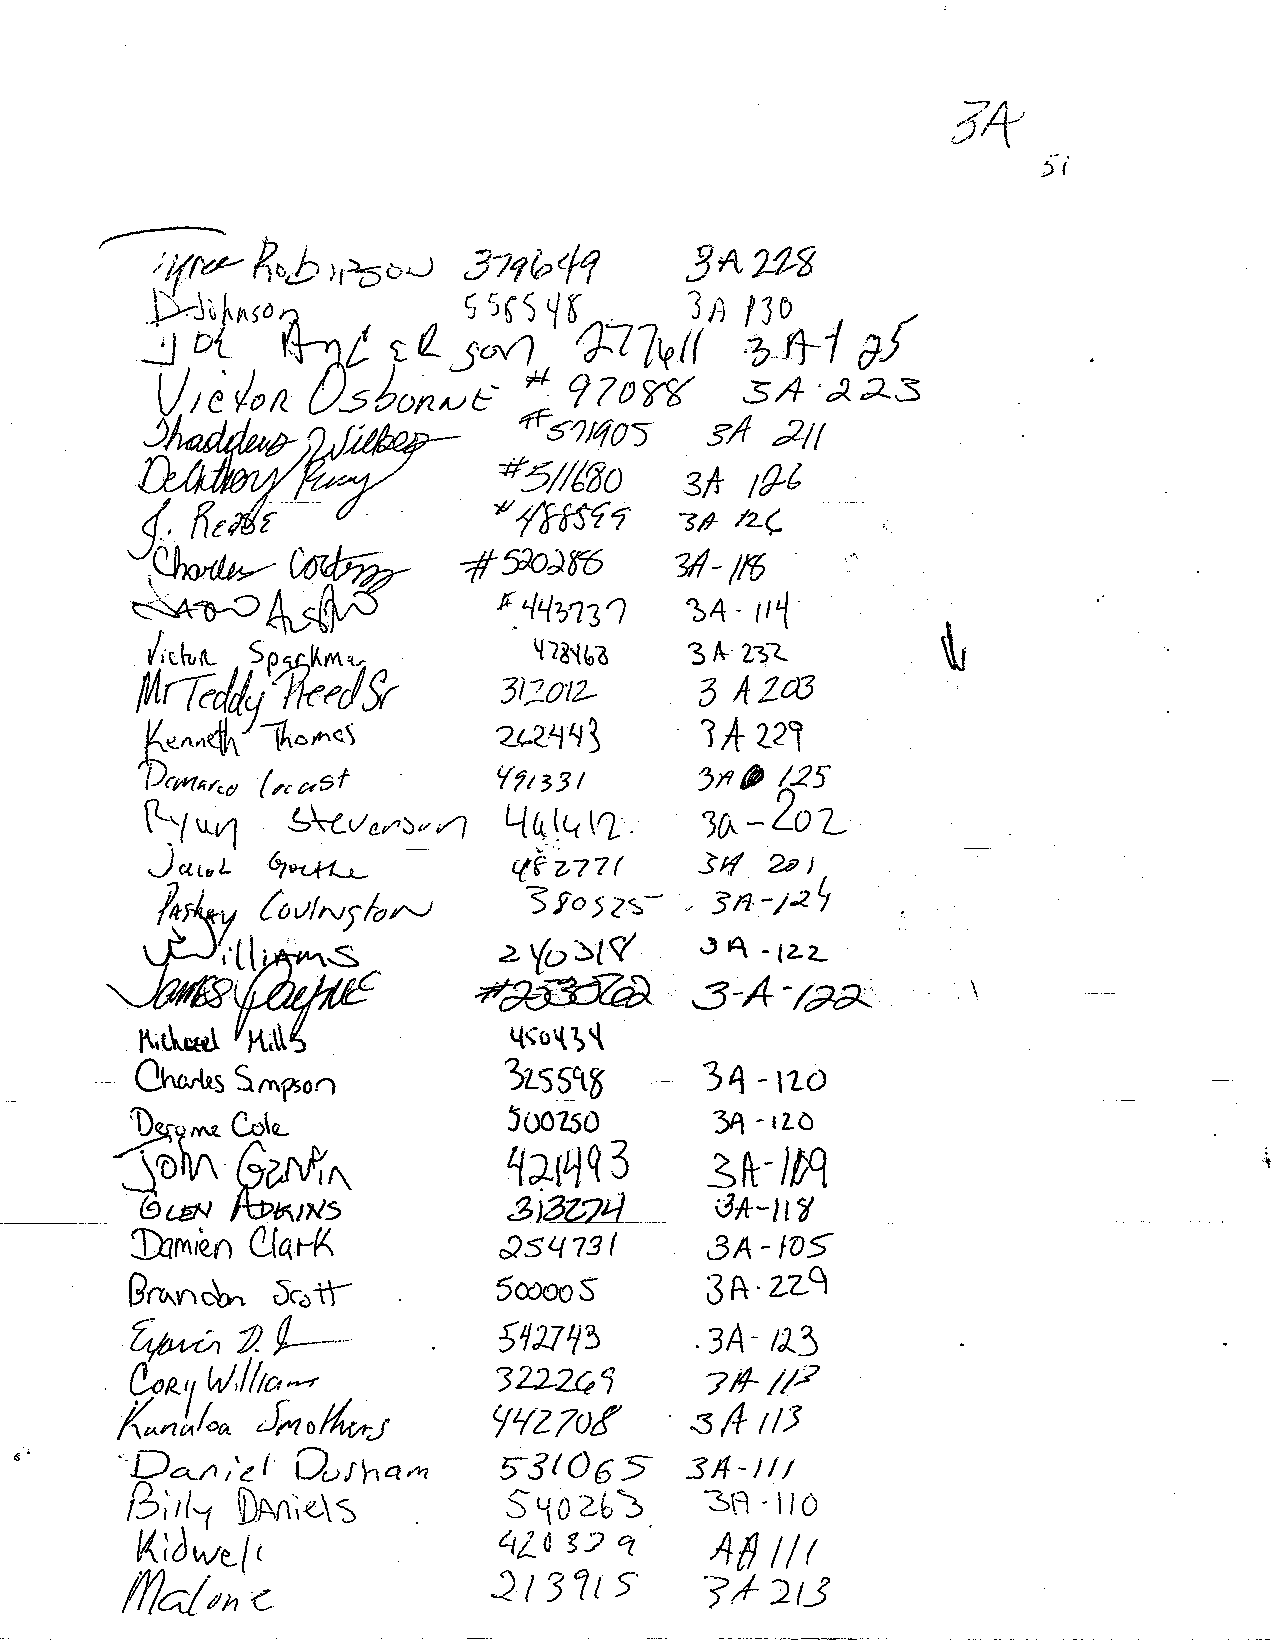 3A
51
Tyree Robinson 379649 3A 228
D. Johnson 558548 3A 130
277611 3A 125
Victor Osborne # 97088 3A-223
Thaddeus Wilbes #571905 3A 211
#511680 3A 126
J. Reese #488599 3A 126
Charles #520286 3A-118
#443737 3A-114
Victor Sparkman 478468 3A 232
Mr Teddy Reed Sr 312012 3 A 203
Kenneth Thomas 262443 3A 229
Demarco Locast 491331 3A 125
Ryun Stevenson 461412 3a-202
Jacob Goethe 482771 3A 201
Paskey Covington 380525 3A-124
Williams 240318 3A-122
James Payne 3-A-122
Michael Mills 450434
Charles Simpson 325598 3A-120
Cole 500250 3A-120
John Garvin 421493 3A-109
Glen Adkins 313274 3A-118
Damien Clark 254731 3A-105
Brandon Scott 500005 3A-229
D. 542743 3A-123
Cory Williams 322269 3A 113
Kanaloa Smothers 442708 3A 113
Daniel Durham 531065 3A-111
Billy Daniels 540263 3A-110
Kidwell 420329 AA 111
Malone 213915 3A 213